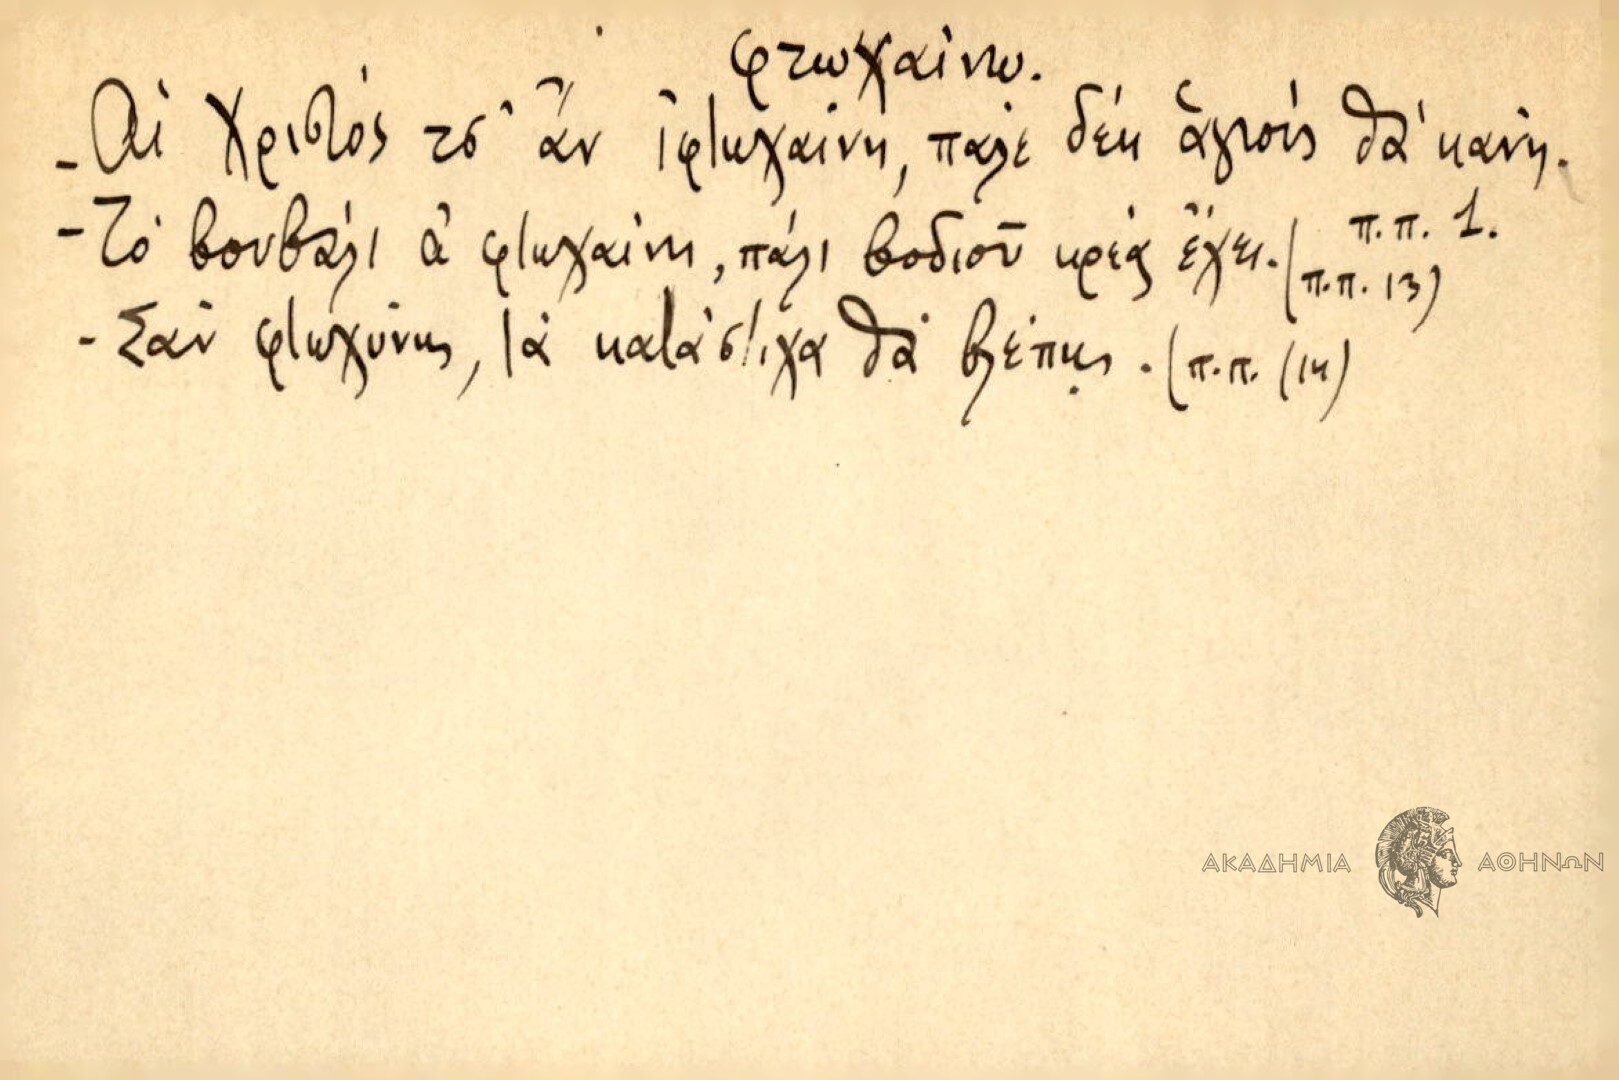 φτωχαίνω.
- Ἁϊ Χριστός τσ' ἂν ἰφτωχαίνη, παλε δέκ ἁγιούς θά κάνη.
π.π. 1.
- Τό βουβάλι ἀ φτωχαίνη, πάλι βοδιοῦ κρέας ἔχει. (π.π. 13)
- Σάν φτωχύνης, τά κατάστιχα θά βλέπης. (π.π. 14)
ΑΚΑΔΗΜΙΑ ΑΘΗΝΩΝ